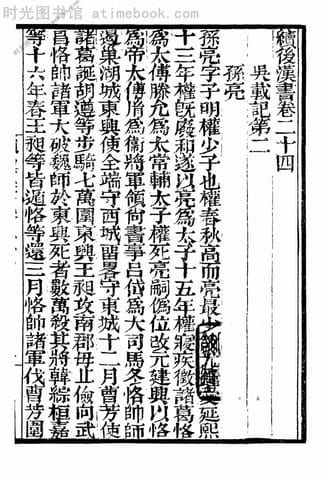 时光图书馆 - atimebook.com
續後漢書卷二十四
吳載記第二
孫亮
孫亮字子明權少子也權春秋高而亮最延熙
十三年權旣廢和遂以亮爲太子十五年權寢疾徵諸葛恪
爲太傅滕允爲太常輔太子權死亮嗣僞位改元建興以恪
爲帝太傅胤爲衞將軍領尚書事呂岱爲大司馬冬恪帥師
遏巢湖城東興使全端守西城留畧守東城十二月曹芳使
諸葛誕胡遵等步騎七萬圍東興王昶攻南郡毋丘儉向武
昌恪帥諸軍大破魏師於東興死者數萬殺其將韓綜桓嘉
等十六年春王昶等皆遁恪等還三月恪帥諸軍伐曹芳圍